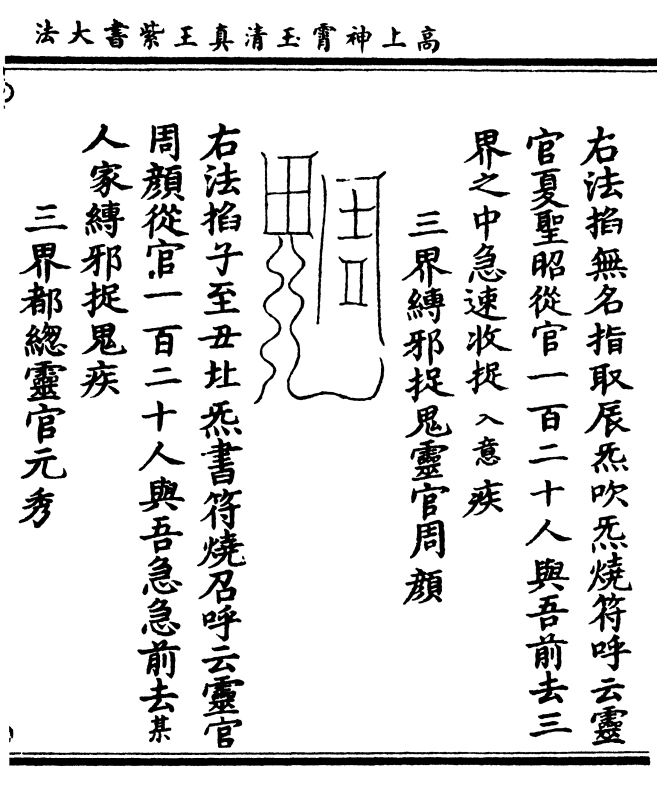 高上神霄玉清真王紫書大法
右法掐無名指取辰炁吹炁燒符呼云靈
官夏聖昭從官一百二十人與吾前去三
界之中急速收捉入意疾
三界縛邪捉鬼靈官周顔
右法掐子至丑圵炁書符燒召呼云靈官
周顔從官一百二十人與吾急急前去某
人家縛邪捉鬼疾
三界都緫靈官元秀